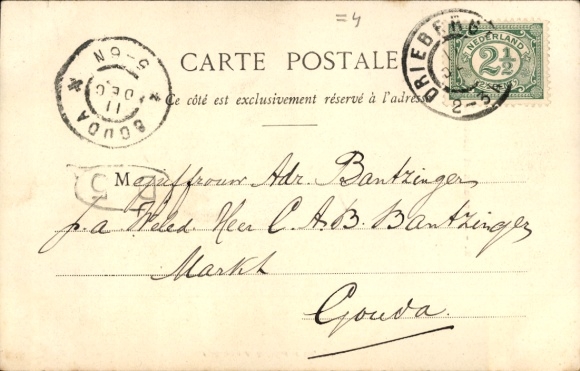 =4
CARTE POSTALE
Ce côté est exclusivement réservé à l'adresse
DRIEBERG
2-3
NEDERLAND
2½
CENT
GOUDA
11 DEC
5-6N
Mejuffrouw Adr. Bantzinger
p.a. Weled. Heer C. A. B. Bantzinger
Markt
Gouda